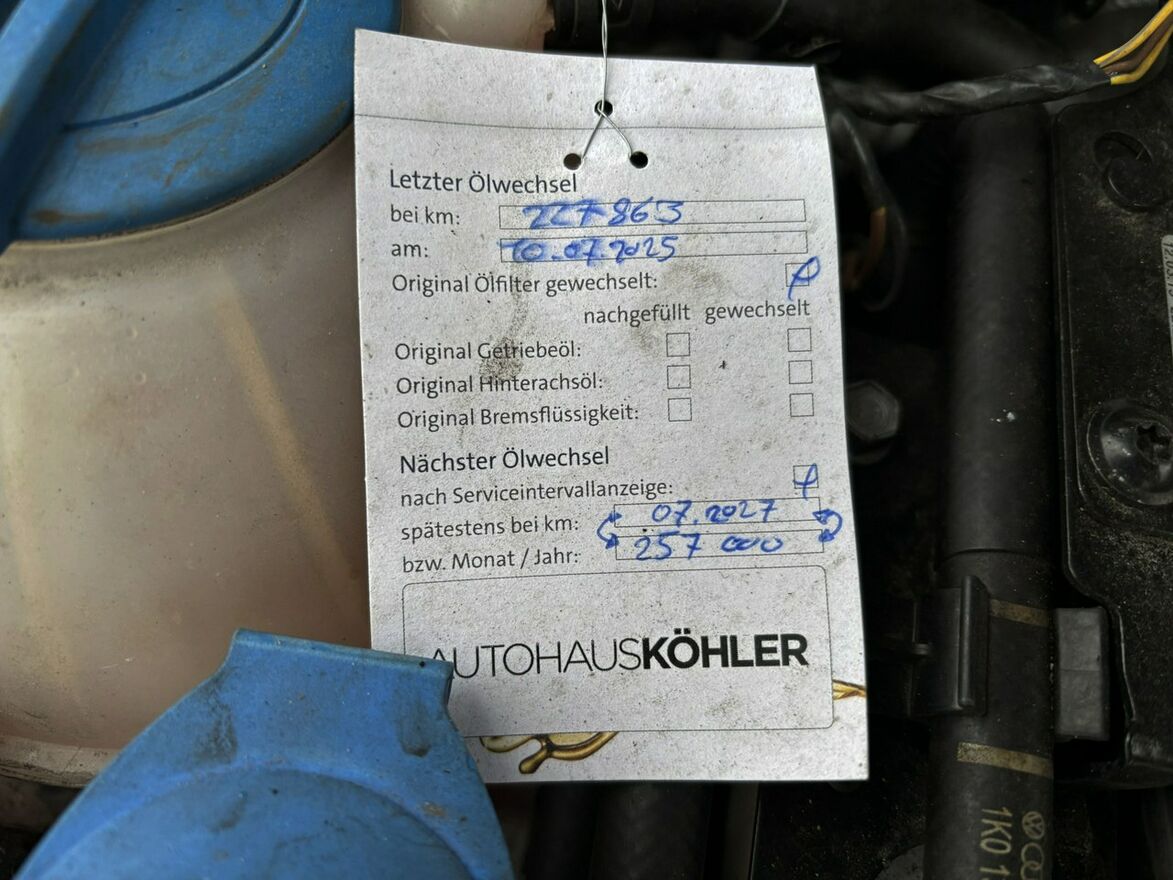 Letzter Ölwechsel
bei km: 227863
am: 10.07.2025
Original Ölfilter gewechselt:
nachgefüllt gewechselt
Original Getriebeöl:
Original Hinterachsöl:
Original Bremsflüssigkeit:
Nächster Ölwechsel
nach Serviceintervallanzeige:
spätestens bei km: 07.2027
bzw. Monat / Jahr: 257 000
AUTOHAUSKÖHLER
1K0 1